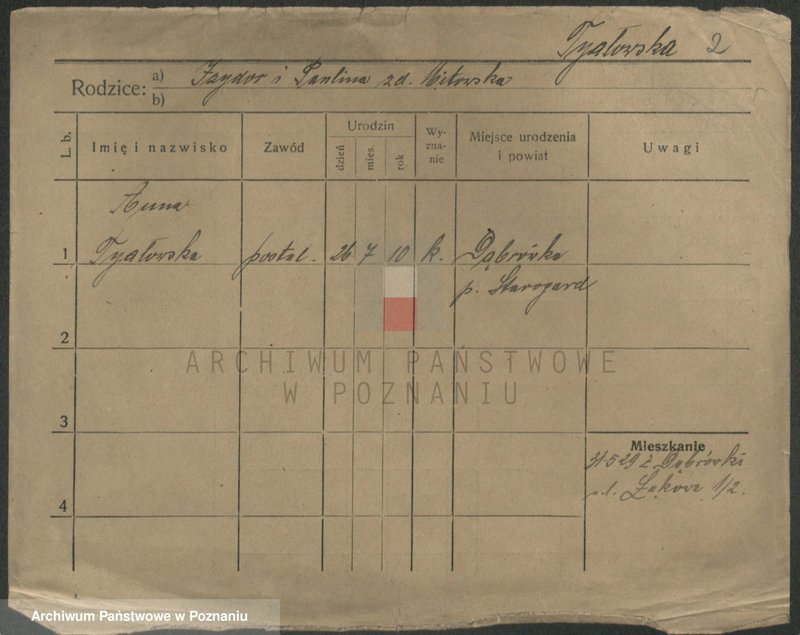 Tyałowska 2
Rodzice: a) Izydor i Paulina zd. Mitowska
b)
L. b.
Imię i nazwisko
Zawód
Urodzin
dzień
mies.
rok
Wy-
zna-
nie
Miejsce urodzenia
i powiat
Uwagi
Anna
1 Tyałowska postal. 26 7 10 k. Dąbrówka
p. Starogard
2
ARCHIWUM PAŃSTWOWE
W POZNANIU
3
Mieszkanie
31.5.29 z Dąbrówki
Łąkowa 1/2.
4
Archiwum Państwowe w Poznaniu